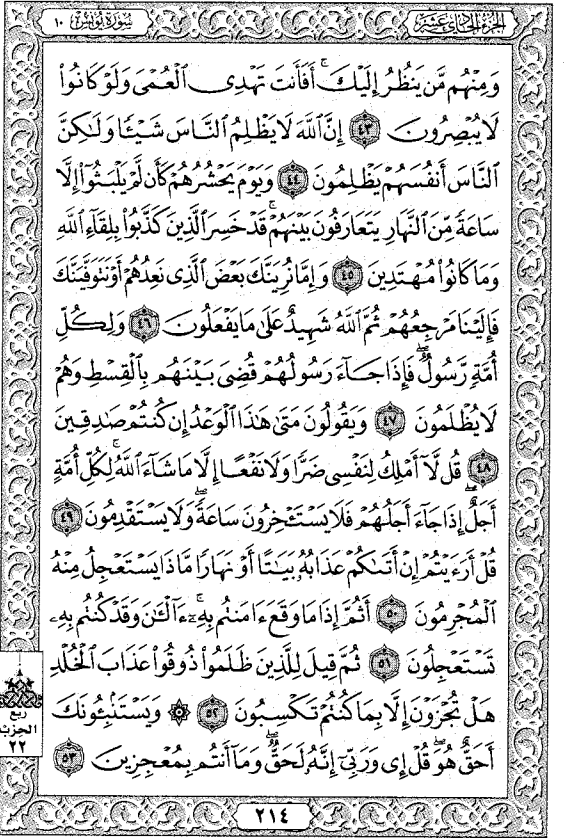 سُورَةُ يُونُسَ ١٠
الجُزءُ الحَادِي عَشَرَ
وَمِنْهُم مَّن يَنظُرُ إِلَيْكَ ۚ أَفَأَنتَ تَهْدِى ٱلْعُمْىَ وَلَوْ كَانُوا۟
لَا يُبْصِرُونَ ٤٣ إِنَّ ٱللَّهَ لَا يَظْلِمُ ٱلنَّاسَ شَيْـًٔا وَلَـٰكِنَّ
ٱلنَّاسَ أَنفُسَهُمْ يَظْلِمُونَ ٤٤ وَيَوْمَ يَحْشُرُهُمْ كَأَن لَّمْ يَلْبَثُوٓا۟ إِلَّا
سَاعَةً مِّنَ ٱلنَّهَارِ يَتَعَارَفُونَ بَيْنَهُمْ ۚ قَدْ خَسِرَ ٱلَّذِينَ كَذَّبُوا۟ بِلِقَآءِ ٱللَّهِ
وَمَا كَانُوا۟ مُهْتَدِينَ ٤٥ وَإِمَّا نُرِيَنَّكَ بَعْضَ ٱلَّذِى نَعِدُهُمْ أَوْ نَتَوَفَّيَنَّكَ
فَإِلَيْنَا مَرْجِعُهُمْ ثُمَّ ٱللَّهُ شَهِيدٌ عَلَىٰ مَا يَفْعَلُونَ ٤٦ وَلِكُلِّ
أُمَّةٍ رَّسُولٌ ۖ فَإِذَا جَآءَ رَسُولُهُمْ قُضِىَ بَيْنَهُم بِٱلْقِسْطِ وَهُمْ
لَا يُظْلَمُونَ ٤٧ وَيَقُولُونَ مَتَىٰ هَـٰذَا ٱلْوَعْدُ إِن كُنتُمْ صَـٰدِقِينَ
٤٨ قُل لَّآ أَمْلِكُ لِنَفْسِى ضَرًّا وَلَا نَفْعًا إِلَّا مَا شَآءَ ٱللَّهُ ۗ لِكُلِّ أُمَّةٍ
أَجَلٌ ۚ إِذَا جَآءَ أَجَلُهُمْ فَلَا يَسْتَـْٔخِرُونَ سَاعَةً ۖ وَلَا يَسْتَقْدِمُونَ ٤٩
قُلْ أَرَءَيْتُمْ إِنْ أَتَىٰكُمْ عَذَابُهُۥ بَيَـٰتًا أَوْ نَهَارًا مَّاذَا يَسْتَعْجِلُ مِنْهُ
ٱلْمُجْرِمُونَ ٥٠ أَثُمَّ إِذَا مَا وَقَعَ ءَامَنتُم بِهِۦٓ ۚ ءَآلْـَٔـٰنَ وَقَدْ كُنتُم بِهِۦ
تَسْتَعْجِلُونَ ٥١ ثُمَّ قِيلَ لِلَّذِينَ ظَلَمُوا۟ ذُوقُوا۟ عَذَابَ ٱلْخُلْدِ
هَلْ تُجْزَوْنَ إِلَّا بِمَا كُنتُمْ تَكْسِبُونَ ٥٢ ۞ وَيَسْتَنۢبِـُٔونَكَ
أَحَقٌّ هُوَ ۖ قُلْ إِى وَرَبِّىٓ إِنَّهُۥ لَحَقٌّ ۖ وَمَآ أَنتُم بِمُعْجِزِينَ ٥٣
ربع
الحزب
٢٢
٢١٤